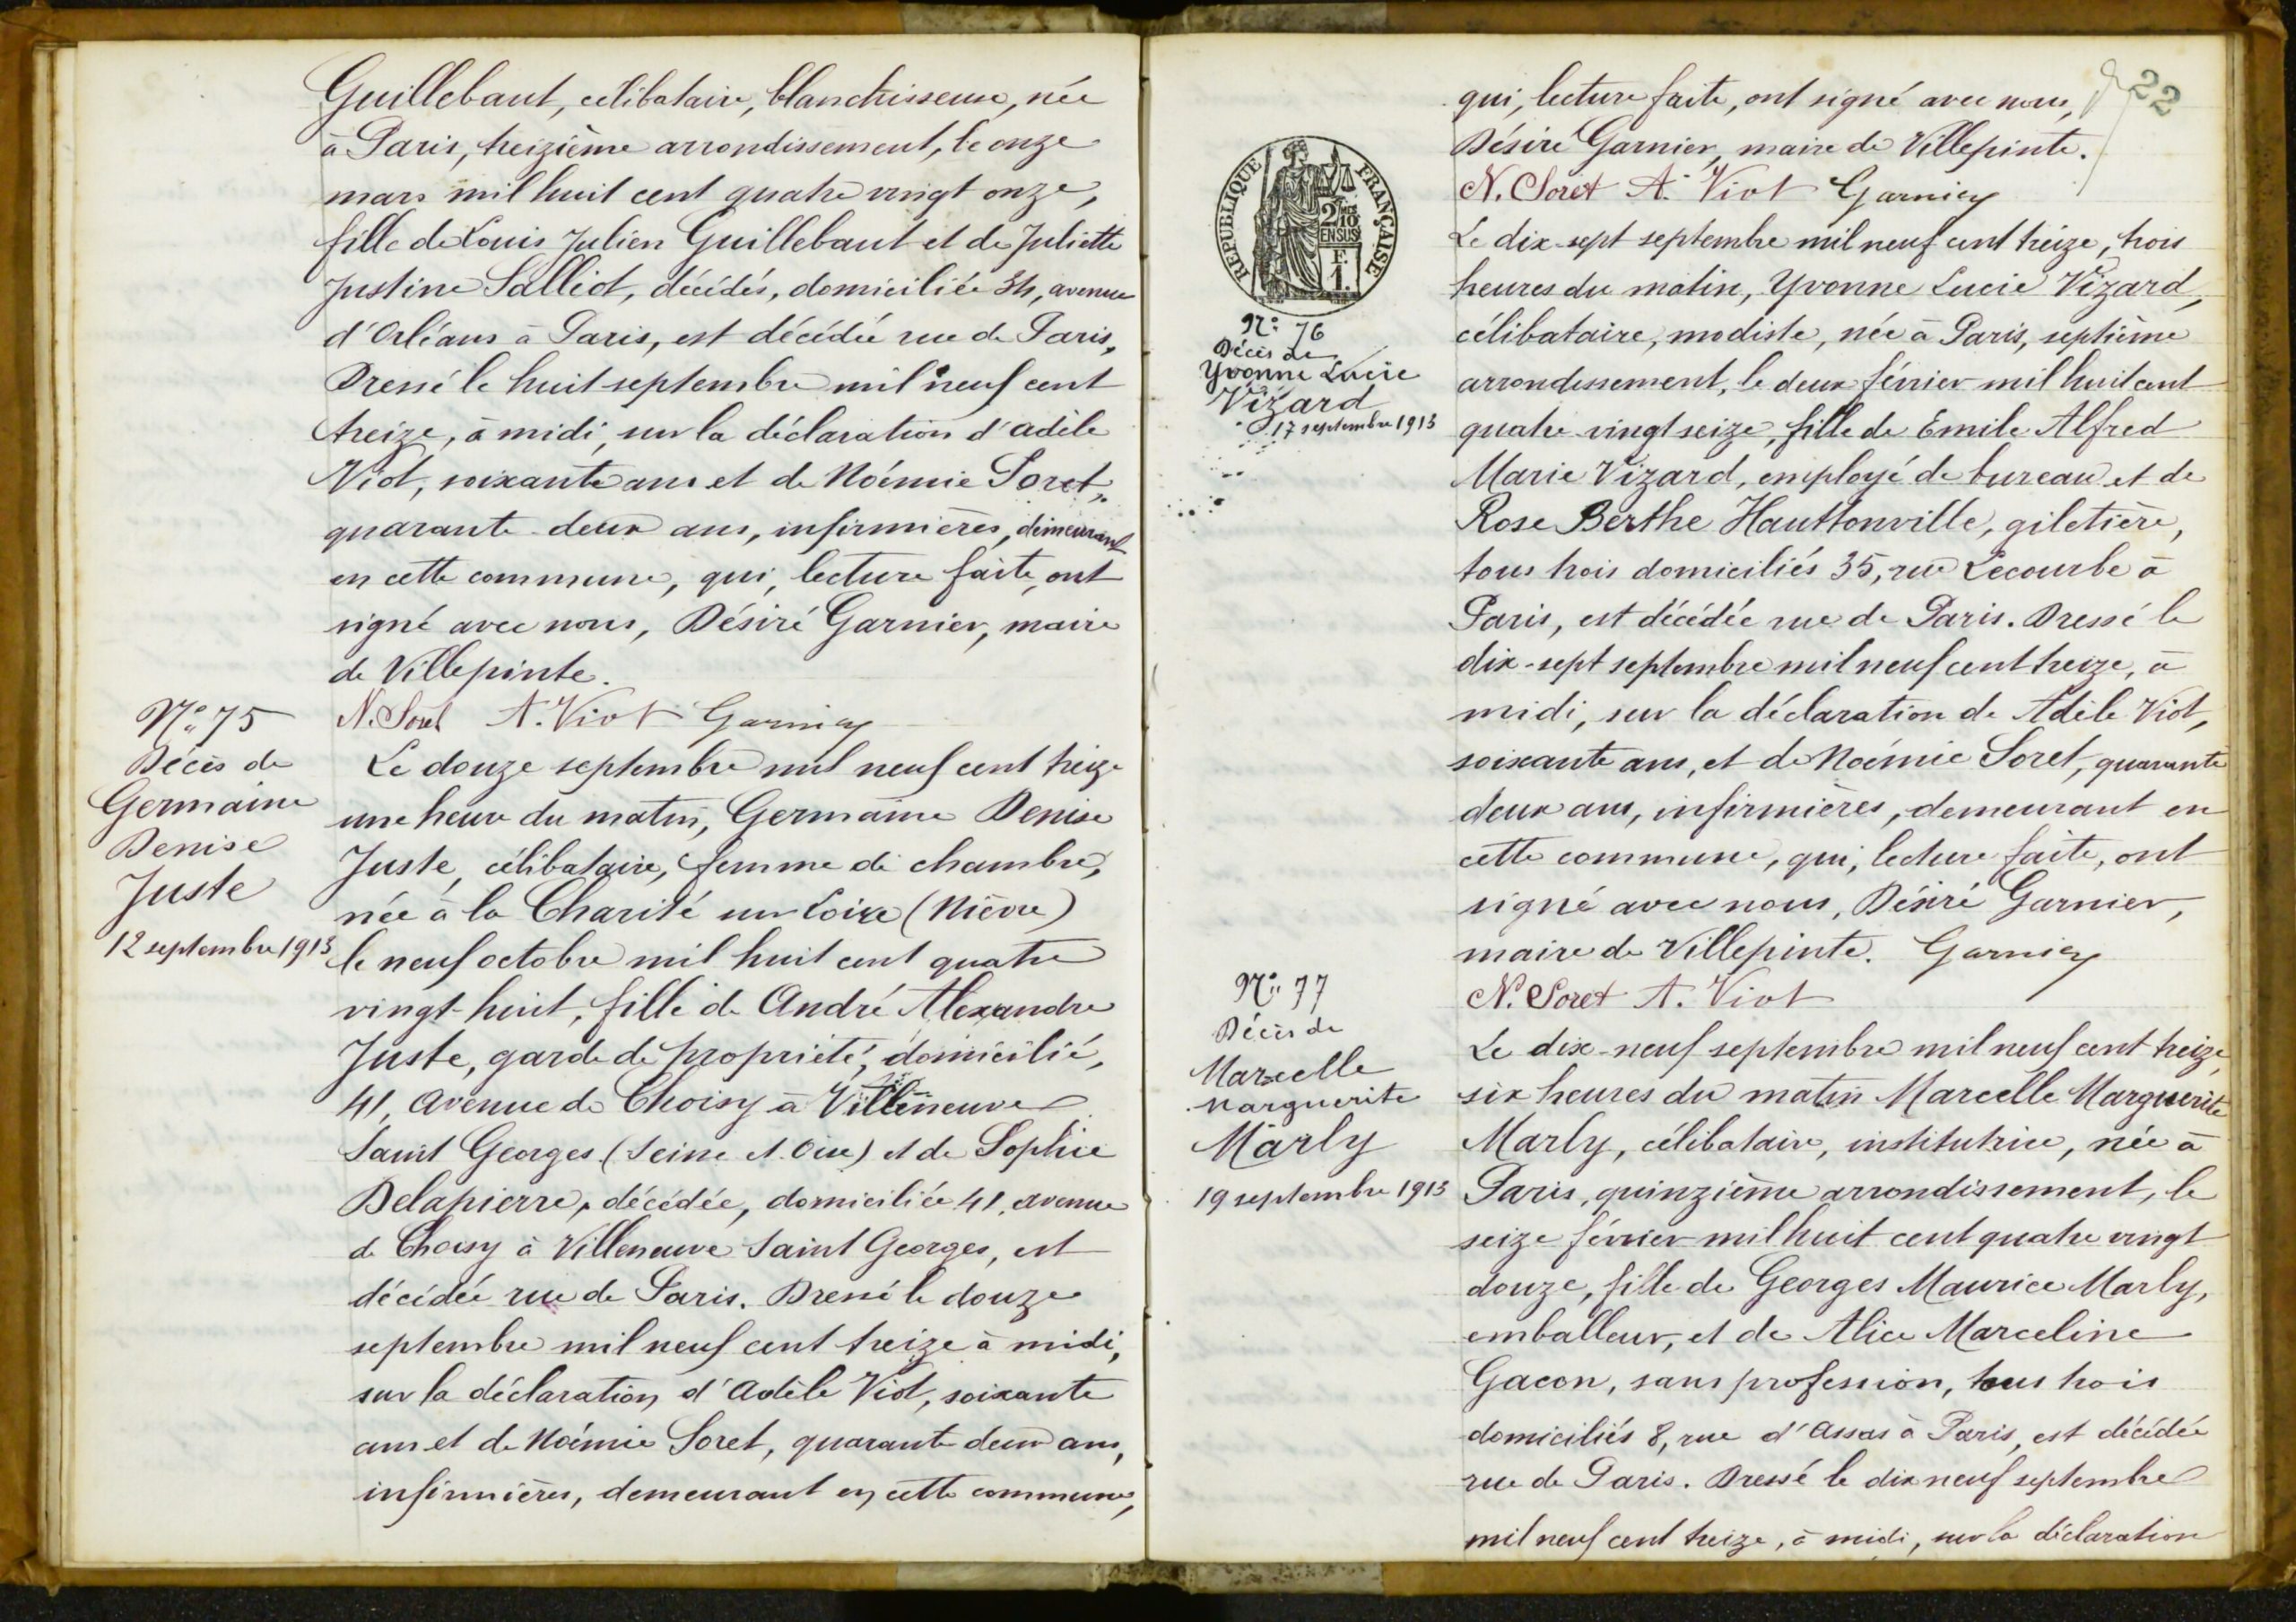 Guillebaut, célibataire, blanchisseuse, née
à Paris, treizième arrondissement, le onze
mars mil huit cent quatre vingt onze,
fille de Louis Julien Guillebaut et de Juliette
Justine Salliot, décédés, domiciliée 34, avenue
d'Orléans à Paris, est décédée rue de Paris.
Dressé le huit septembre mil neuf cent
treize, à midi, sur la déclaration d'adèle
Viot, soixante ans et de Noémie Soret,
quarante-deux ans, infirmières, demeurant
en cette commune, qui, lecture faite, ont
signé avec nous, Désiré Garnier, maire
de Villepinte.
N. Soret A. Viot Garnier
N° 75
Décès de
Germaine
Denise
Juste
12 septembre 1913
Le douze septembre mil neuf cent treize
une heure du matin, Germaine Denise
Juste, célibataire, femme de chambre,
née à la Charité sur Loire (Nièvre)
le neuf octobre mil huit cent quatre
vingt-huit, fille de André Alexandre
Juste, garde de propriété, domicilié,
41, avenue de Choisy à Villeneuve
Saint Georges (Seine et Oise) et de Sophie
Delapierre, décédée, domiciliée 41, avenue
de Choisy à Villeneuve Saint Georges, est
décédée rue de Paris. Dressé le douze
septembre mil neuf cent treize à midi,
sur la déclaration d'adèle Viot, soixante
ans et de Noémie Soret, quarante deux ans,
infirmières, demeurant en cette commune,
22
qui, lecture faite, ont signé avec nous,
Désiré Garnier, maire de Villepinte.
N. Soret A. Viot Garnier
REPUBLIQUE FRANÇAISE
2/10 EN SUS
F.
1.
N° 76
Décès de
Yvonne Lucie
Vizard
17 septembre 1913
Le dix-sept septembre mil neuf cent treize, trois
heures du matin, Yvonne Lucie Vizard,
célibataire, modiste, née à Paris, septième
arrondissement, le deux février mil huit cent
quatre-vingt seize, fille de Emile Alfred
Marie Vizard, employé de bureau et de
Rose Berthe Hauttonville, giletière,
tous trois domiciliés 35, rue Lecourbe à
Paris, est décédée rue de Paris. Dressé le
dix-sept septembre mil neuf cent treize, à
midi, sur la déclaration de Adèle Viot,
soixante ans, et de Noémie Soret, quarante
deux ans, infirmières, demeurant en
cette commune, qui, lecture faite, ont
signé avec nous, Désiré Garnier,
maire de Villepinte. Garnier
N. Soret A. Viot
N° 77
Décès de
Marcelle
Marguerite
Marly
19 septembre 1913
Le dix-neuf septembre mil neuf cent treize,
six heures du matin Marcelle Marguerite
Marly, célibataire, institutrice, née à
Paris, quinzième arrondissement, le
seize février mil huit cent quatre vingt
douze, fille de Georges Maurice Marly,
emballeur, et de Alice Marceline
Gacon, sans profession, tous trois
domiciliés 8, rue d'Assas à Paris, est décédée
rue de Paris. Dressé le dix neuf septembre
mil neuf cent treize, à midi, sur la déclaration